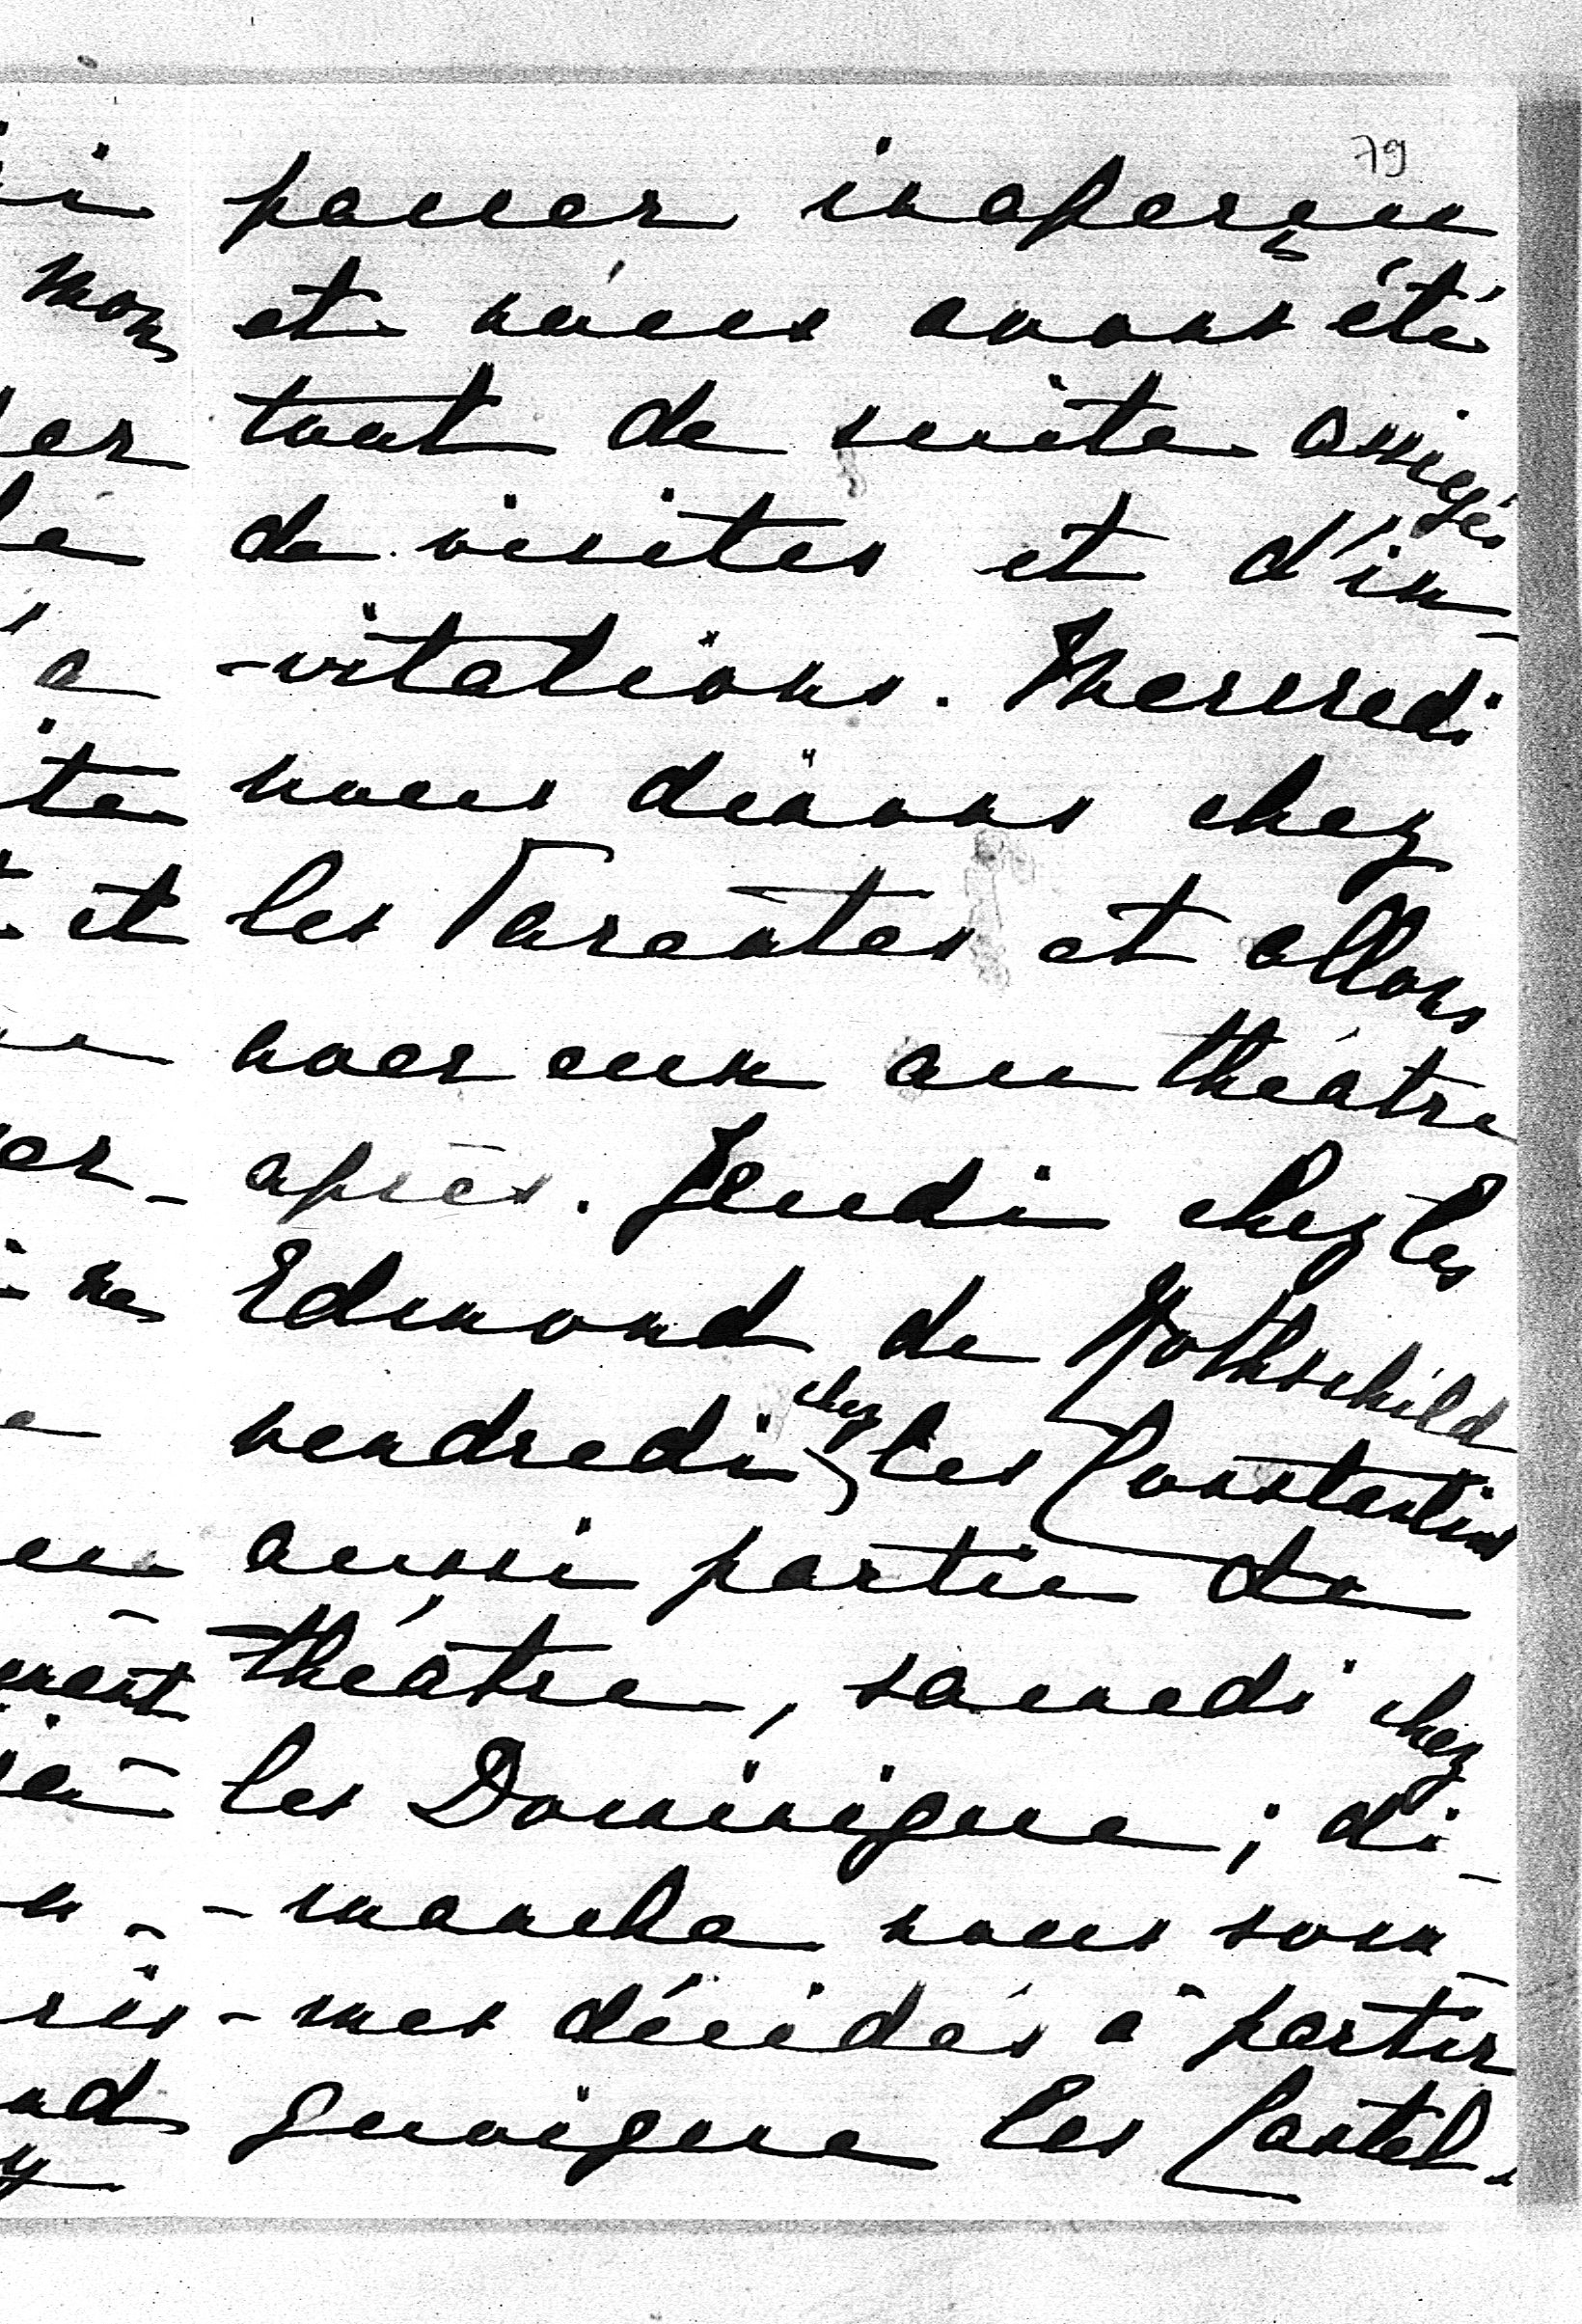 79
passer inaperçu
et nous avons été
tout de suite assiégés
de visites et d'in-
-vitations. Mercredi
nous dînons chez
les Tarentes et allons
avec eux au théâtre
après. Jeudi chez les
Edmond de Rothschild
vendredi chez les Constantin
aussi partie de
théâtre, samedi chez
les Dominique ; di-
-manche nous som-
-mes décidés à partir
quoique les Castel-